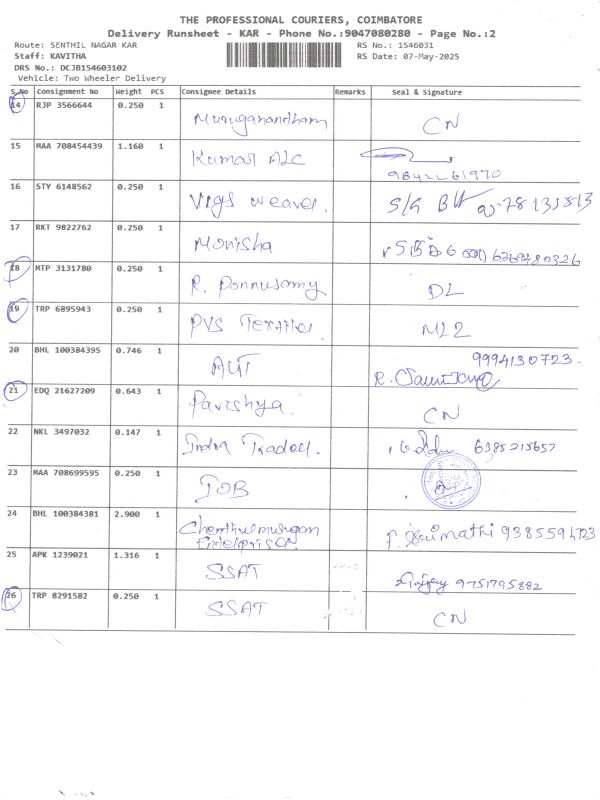 THE PROFESSIONAL COURIERS, COIMBATORE
Delivery Runsheet - KAR - Phone No.:9047080280 - Page No.:2
Route: SENTHIL NAGAR KAR
RS No.: 1546031
Staff: KAVITHA
RS Date: 07-May-2025
DRS No.: DCJB154603102
Vehicle: Two Wheeler Delivery
S.No Consignment No Weight PCS Consignee Details Remarks Seal & Signature
14 RJP 3566644 0.250 1 Muruganandham CN
15 MAA 708454439 1.160 1 Kumar ALC 9842261970
16 STY 6148562 0.250 1 Vigs weaver. S/G
17 RKT 9822762 0.250 1 Monisha 6369480326
18 MTP 3131780 0.250 1 R. Ponnusamy DL
19 TRP 6895943 0.250 1 PVS Textiles
20 BHL 100384395 0.746 1 AUT 9994130723.
21 EDQ 21627209 0.643 1 Pavishya. CN
22 NKL 3497032 0.147 1 India Trades. 6385215657
23 MAA 708699595 0.250 1 IOB
24 BHL 100384381 2.900 1 Chenthilmurugan
Enterprises
25 APK 1239021 1.316 1 SSAT 9751795882
26 TRP 8291582 0.250 1 SSAT CN